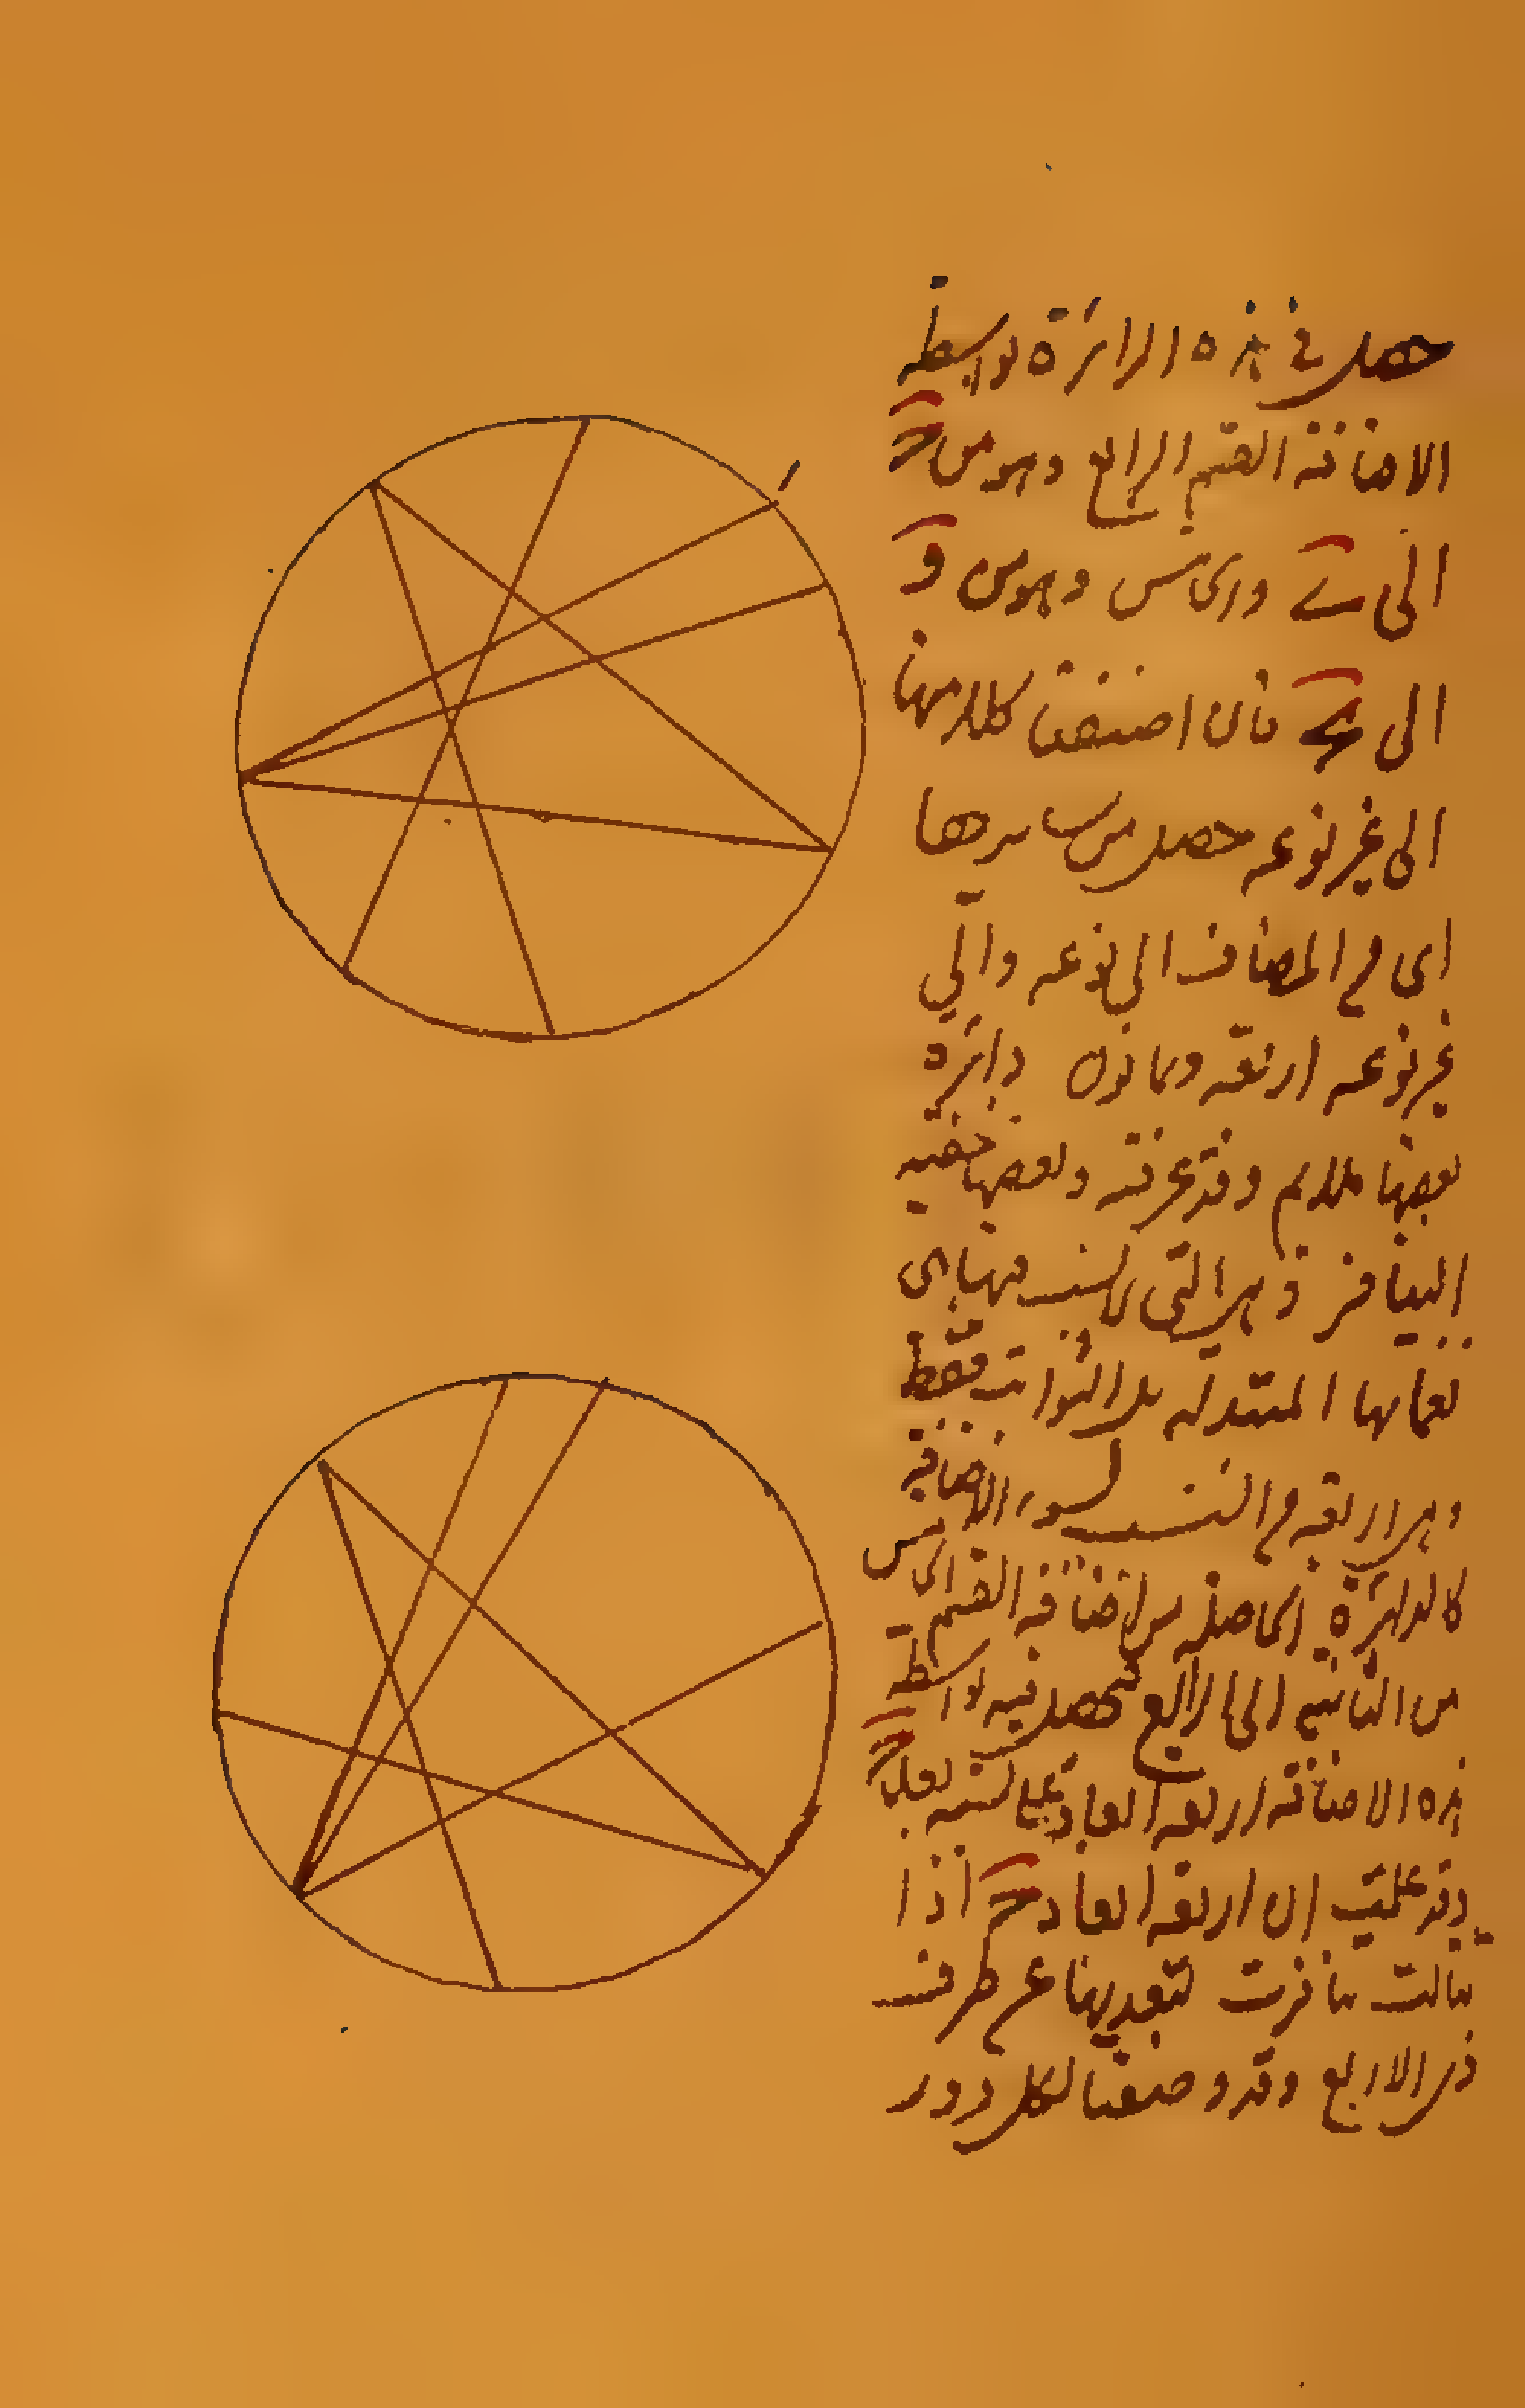 حصل في هذه الدائرة بواسطة
الاضافة القسم الرابع وهو من ح
الى ے وركا س وهو من و
الى فان اضفنا كلا منها
الى غير نوعه حصل من سايرها
اى م المضاف الى نوعه والى
غير نوعه اربعة وثمانون دائرة
بعضها ملايم وقد عرفته وبعضها خفية
التنافر وهى التى ليست فيها
نغماتها المتبدلة بل الثوابت فقط
وهى اربعة م النسب لسوء الاضافة
كالدائرة الحاصلة من اضافة القسم الخامس
من الثانية الى الرابع فيحصل فيه بواسطة
هذه الاضافة اربعة ابعاد على نسبة بعد ج
وقد علمت ان اربعة ابعاد ج اذا
توالت تنافرت لتعديها عن طرف
ذى الاربع وقد وضعنا لكل دور